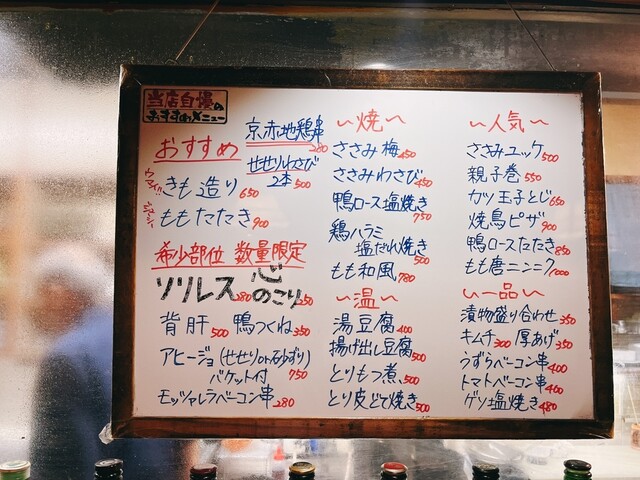 当店自慢の
おすすめメニュー
おすすめ
京赤地鶏串
280
せせりわさび
2本500
ウマイ!!
きも造り650
ももたたき900
希少部位 数量限定
ソリレス280
心のこり250
背肝500 鴨つくね350
アヒージョ(せせりor砂ずり)
バケット付 750
モッツァレラベーコン串280
～焼～
ささみ梅450
ささみわさび450
鴨ロース塩焼き
750
鶏ハラミ
塩だれ焼き
500
もも和風780
～温～
湯豆腐400
揚げ出し豆腐500
とりもつ煮、500
とり皮どて焼き500
～人気～
ささみユッケ500
親子巻550
カツ玉子とじ650
焼鳥ピザ900
鴨ロースたたき850
もも唐ニンニク1000
～一品～
漬物盛り合わせ350
キムチ300 厚あげ350
うずらベーコン串400
トマトベーコン串400
ゲソ塩焼き480